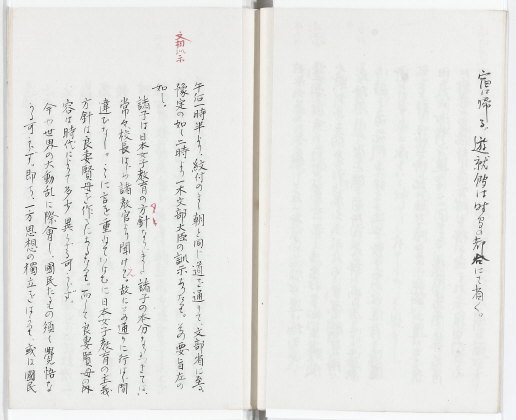 宿に帰る、遊就館は時間の都合にて省く。
文相訓示
午后一時半より、紋付のまゝ朝と同じ道を通りて、文部省に至る、
豫定の如く二時より一木文部大臣の訓示あり、その要旨左の
如し。
諸子は日本女子教育の方針なり、諸子の本分なりにつきては、
常々校長はじめ諸教官より聞けて、故にその通りに行はゞ間
違ひなし。こゝに言を重ねていはむに日本女子教育の主義
方針は良妻賢母を作るにあり。而して良妻賢母の内
容は時代により多少異ならざる可からず。
今や世界の大動乱に際會し、國民たるもの須く覺悟な
かる可からず、即ち、一方思想の獨立をはかり、或は國民